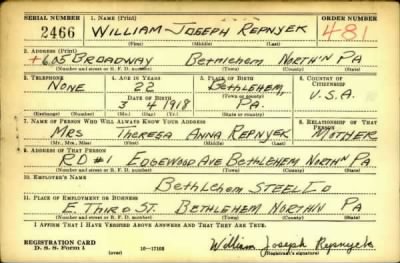 SERIAL NUMBER 1. NAME (Print) ORDER NUMBER
2466 WILLIAM JOSEPH REPNYEK 481
(First) (Middle) (Last)
2. ADDRESS (Print)
+605 BROADWAY BETHLEHEM NORTH'N PA
(Number and street or R. F. D. number) (Town) (County) (State)
3. TELEPHONE 4. AGE IN YEARS 5. PLACE OF BIRTH 6. COUNTRY OF CITIZENSHIP
NONE 22 BETHLEHEM,
DATE OF BIRTH (Town or county) U.S.A.
3 4 1918 PA.
(Exchange) (Number) (Mo.) (Day) (Yr.) (State or country)
7. NAME OF PERSON WHO WILL ALWAYS KNOW YOUR ADDRESS 8. RELATIONSHIP OF THAT PERSON
MRS THERESA ANNA REPNYEK MOTHER
(Mr., Mrs., Miss) (First) (Middle) (Last)
9. ADDRESS OF THAT PERSON
RD #1 EDGEWOOD AVE BETHLEHEM NORTH'N PA
(Number and street or R. F. D. number) (Town) (County) (State)
10. EMPLOYER'S NAME
BETHLEHEM STEEL CO
11. PLACE OF EMPLOYMENT OR BUSINESS
E. THIRD ST. BETHLEHEM NORTH'N PA
(Number and street or R. F. D. number) (Town) (County) (State)
I AFFIRM THAT I HAVE VERIFIED ABOVE ANSWERS AND THAT THEY ARE TRUE.
REGISTRATION CARD
D. S. S. Form 1 (over) 16-17105 William Joseph Repnyek
(Registrant's signature)